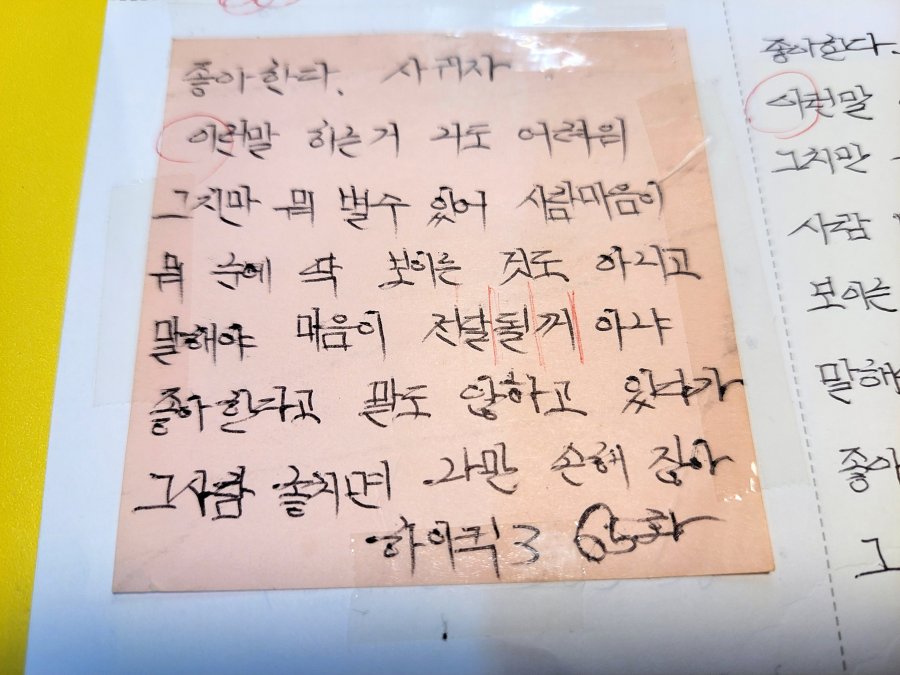 좋아한다. 사귀자
이런말 하는거 나도 어려워
그치만 뭐 별수 있어 사람마음이
뭐 눈에 딱 보이는 것도 아니고
말해야 마음이 전달될꺼 아냐
좋아한다고 말도 않하고 있다가
그사람 놓치면 나만 손해 잖아
하이퀵3 65화
좋아한다.
이런말
그치만
사람
보이는
말해
좋아
그